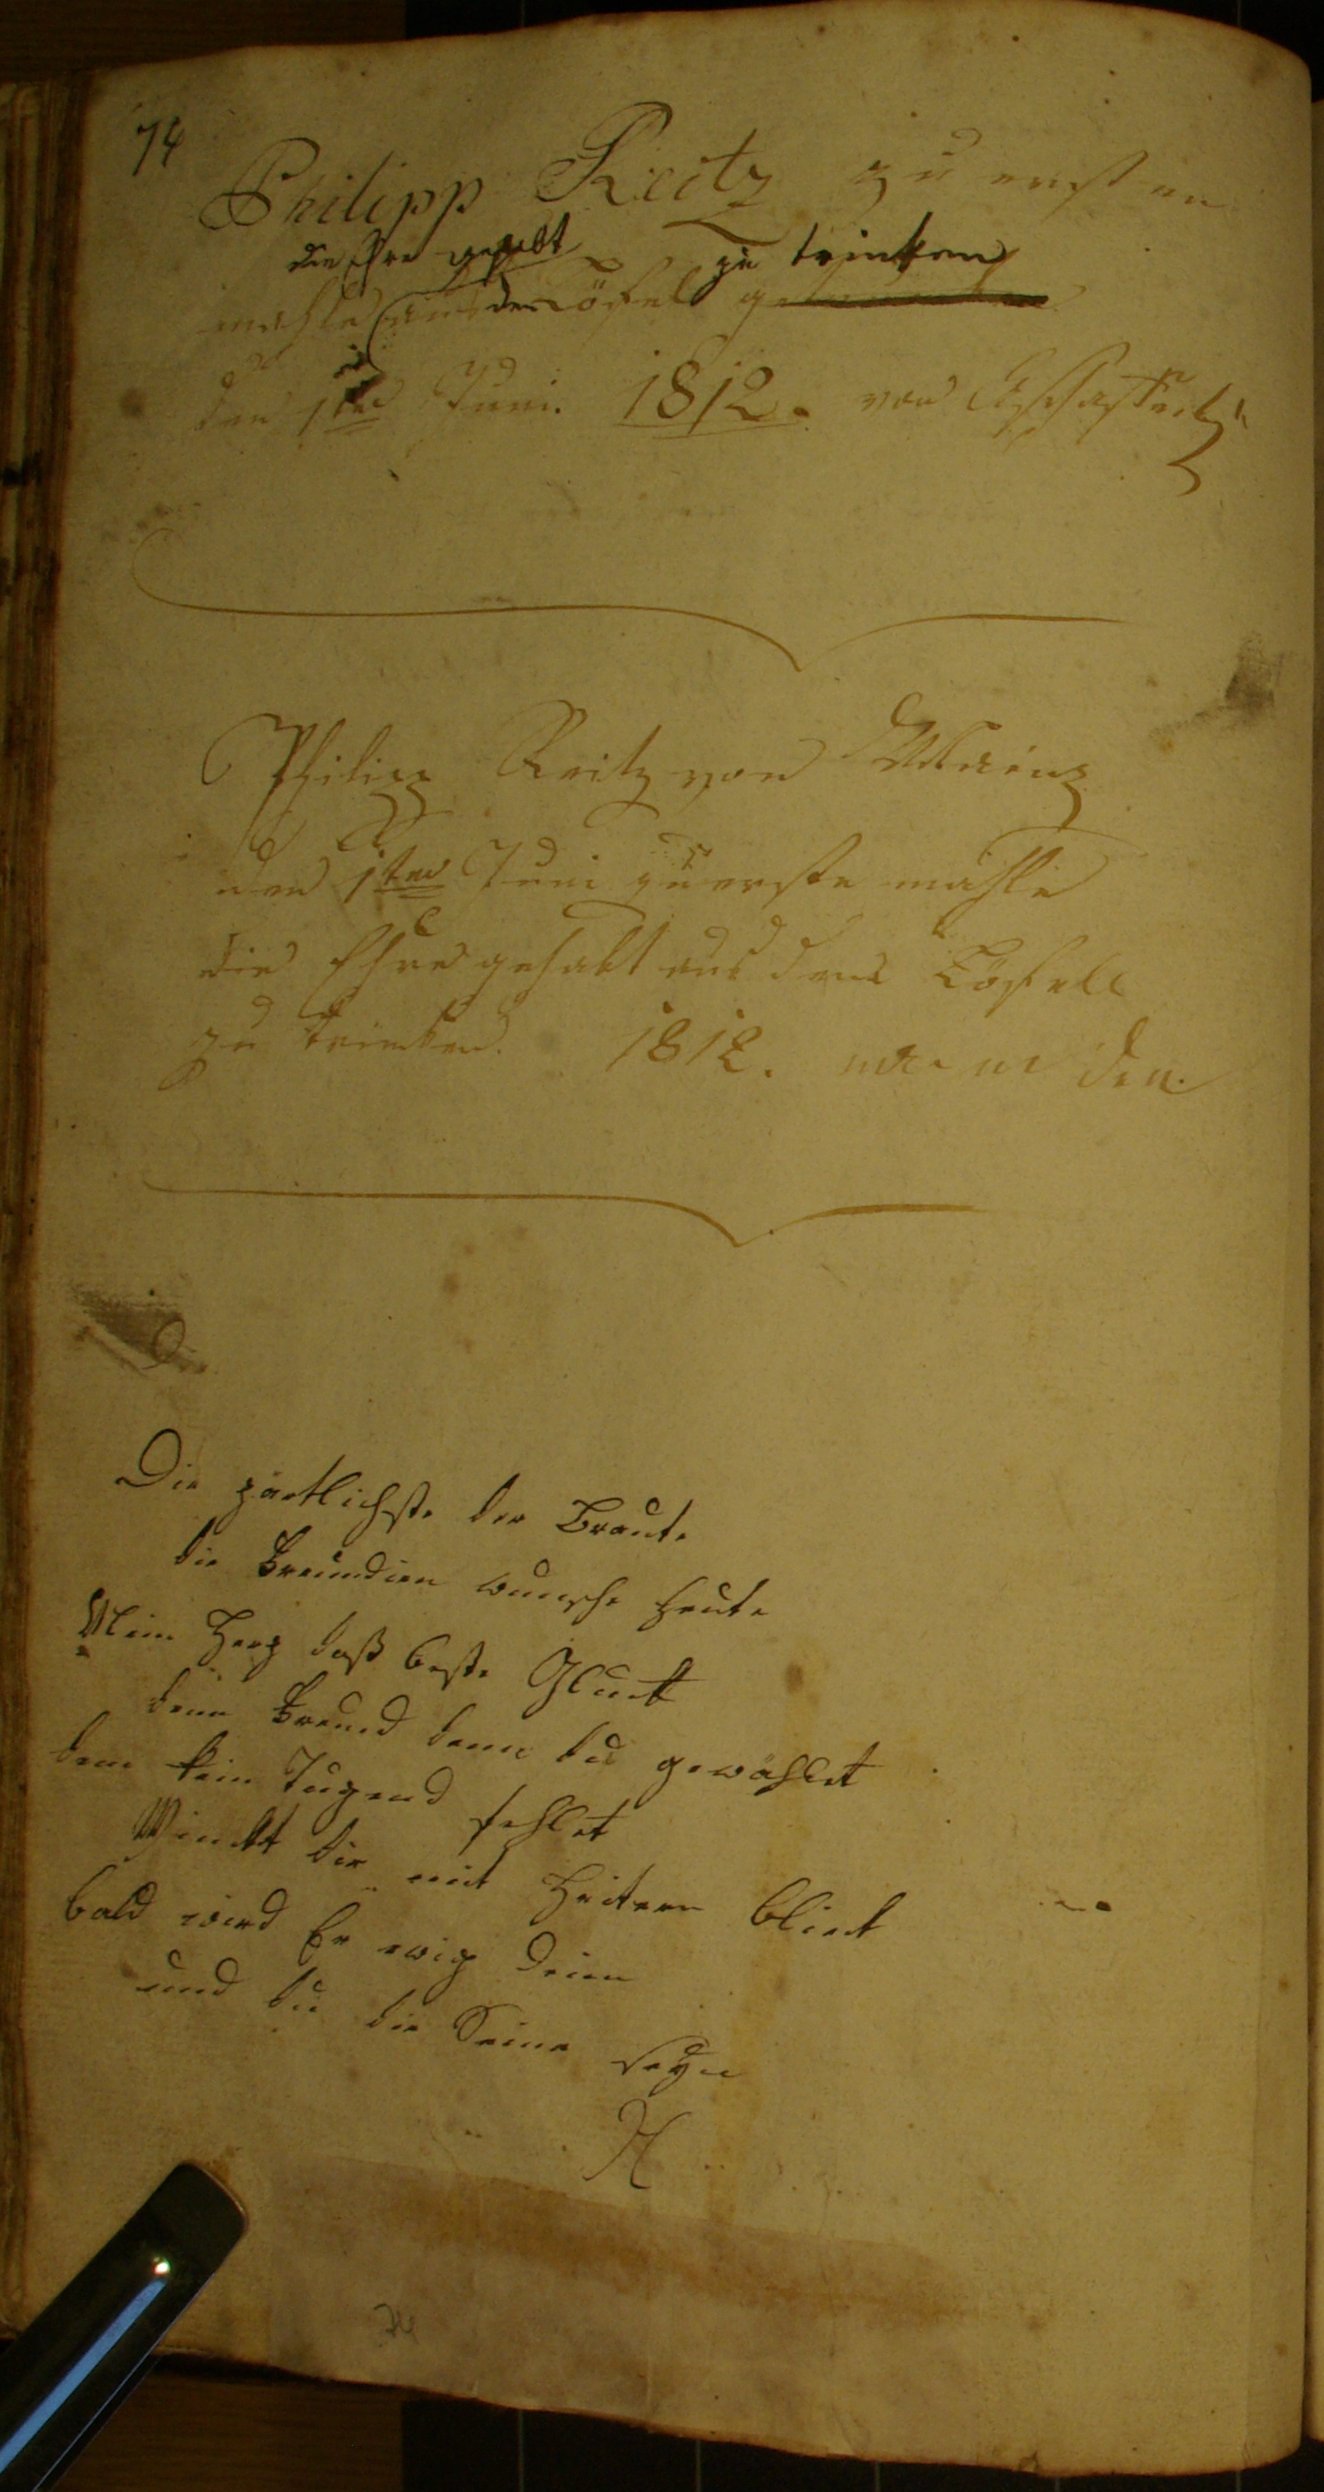 74
Philipp Reitz zu ersten
die Ehre gehabt zu trinken
mahle aus den Löfel
den 1ten Juni 1812. von
Philipp Reitz von Mainz
den 1ten Juni zu erste mahle
die Ehre gehabt aus dem Löfell
zu trinken. 1812.
Die zärtlichste der Bräute
die Freundien wünsche heute
Mein Herz daß beste Glück
dein Freund denn du gewählet
dem kein Tugend fehlet
Winckt dir mit heitern blick
bald wird Er ewig deien
und du die Seine seyn
H